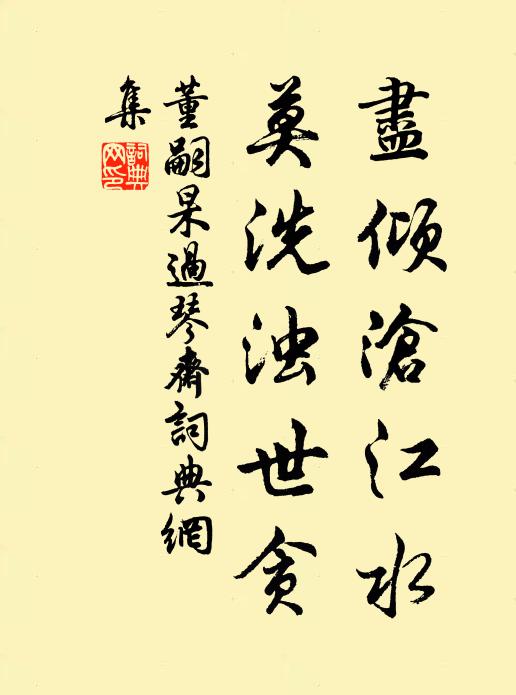 盡傾滄江水
莫洗浊世貪
董嗣杲過琴齋詞典網
集
詞典
网印